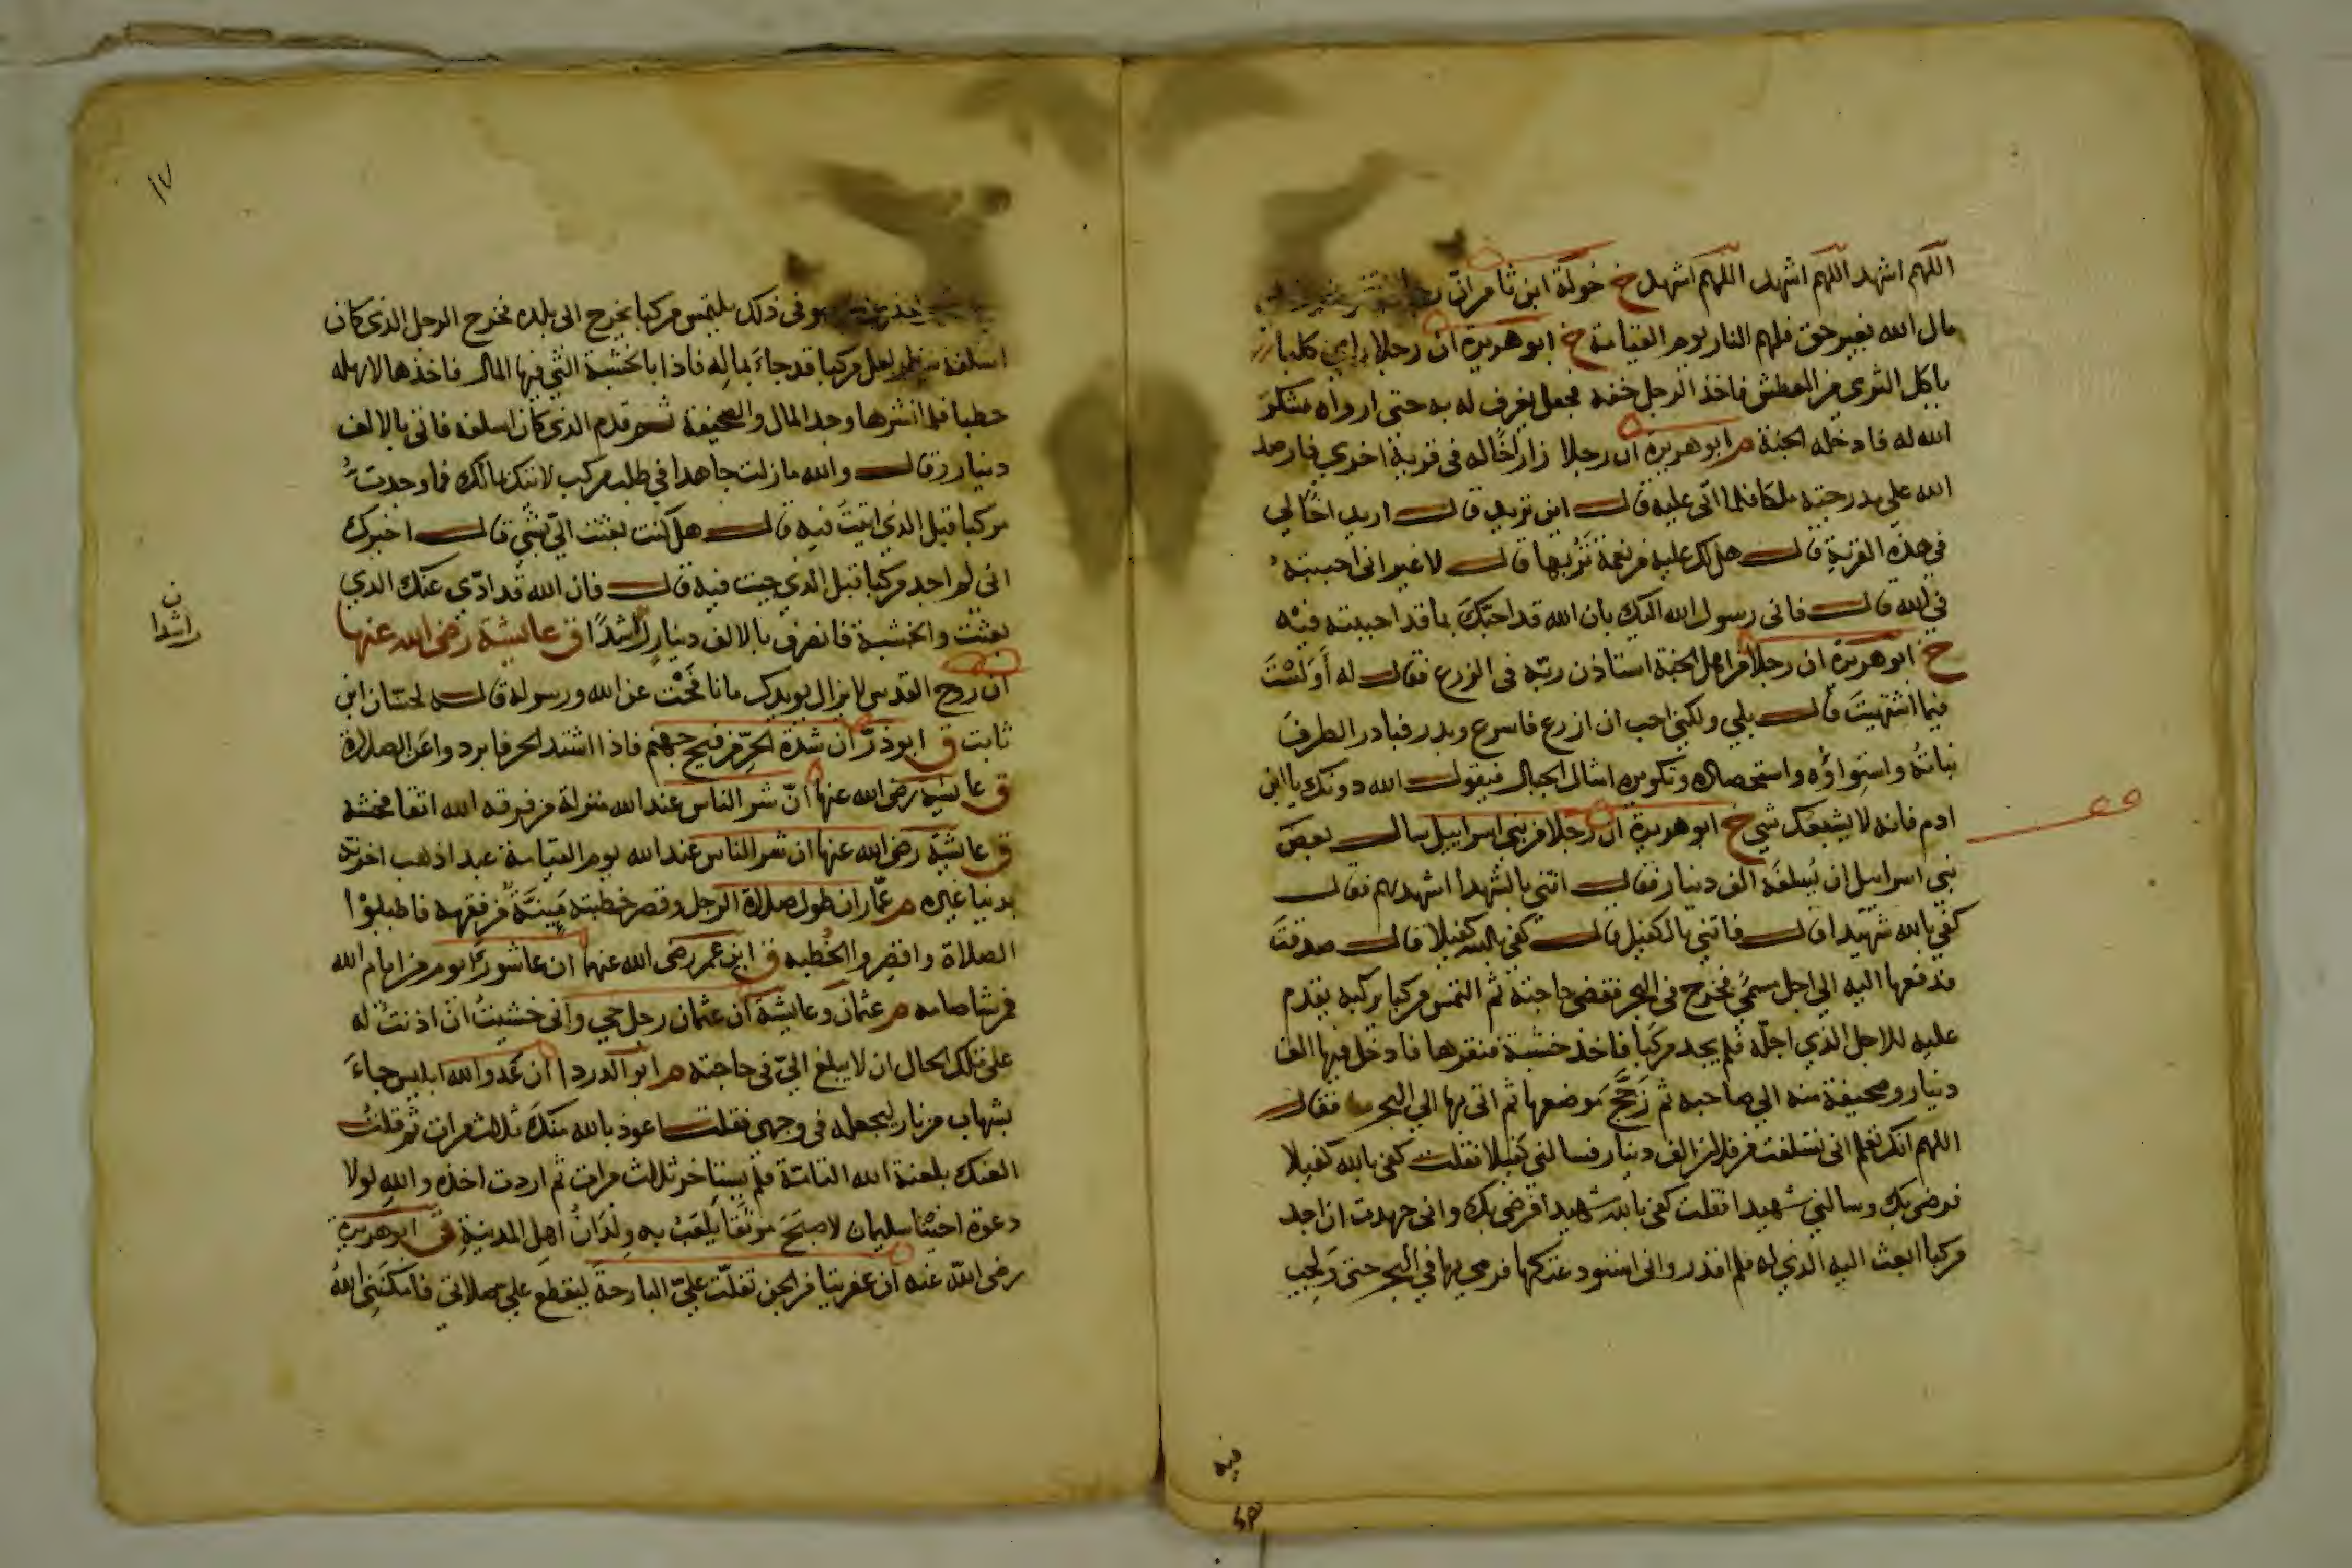 اللهم اشهد اللهم اشهد اللهم اشهد خ خولة ابن ثامر ان
مال الله بغير حق فلهم النار يوم القيامة خ ابو هريرة ان رجلا راى كلبا
ياكل الثرى من العطش فاخذ الرجل خفه فجعل يغرف له به حتى ارواه فشكر
الله له فادخله الجنة م ابو هريرة ان رجلا زار اخا له فى قرية اخرى فارصد
الله على مدرجته ملكا فلما اتى عليه قال اين تريد قال اريد اخا لي
في هذه القرية قال هل لك عليه من نعمة تربها قال لا غير انى احببته
في الله قال فانى رسول الله اليك بان الله قد احبك بما قد احببته فيه
خ ابو هريرة ان رجلا من اهل الجنة استاذن ربه فى الزرع فقال له أولست
فيما اشتهيت قال بلي ولكني احب ان ازرع فاسرع وبدر فبادر الطرف
نباته واستواؤه واستحصاده وتكويره امثال الجبال فيقول الله دونك يا ابن
ادم فانه لا يشبعك شي خ ابو هريرة ان رجلا من بني اسراييل سال بعض
بني اسراييل ان يسلفه الف دينار فقال ائتني بالشهدا اشهدهم فقال
كفي بالله شهيدا قال فاتني بالكفيل قال كفى بالله كفيلا قال صدقت
فدفعها اليه الي اجل مسمى فخرج فى البحر فقضى حاجته ثم التمس مركبا يركبه يقدم
عليه للاجل الذي اجله فلم يجد مركبا فاخذ خشبة فنقرها فادخل فيها الف
دينار وصحيفة منه الي صاحبه ثم زجج موضعها ثم اتى بها الي البحر فقال
اللهم انك تعلم انى تسلفت من فلان الف دينار فسالني كفيلا فقلت كفى بالله كفيلا
فرضى بك وسالني شهيدا فقلت كفى بالله شهيدا فرضى بك وانى جهدت ان اجد
مركبا ابعث اليه الذي له فلم اقدر وانى استودعتكها فرمي بها في البحر حتى ولجت
فيه
وهو فى ذلك يلتمس مركبا يخرج الى بلده فخرج الرجل الذى كان
اسلفه ينظر لعل مركبا قد جاء بماله فاذا بالخشبة التي فيها المال فاخذها لاهله
حطبا فلما نشرها وجد المال والصحيفة ثم قدم الذى كان اسلفه فاتى بالالف
دينار وقال والله ما زلت جاهدا في طلب مركب لاتيك بمالك فما وجدت
مركبا قبل الذى اتيت فيه قال هل كنت بعثت الي بشي قال اخبرك
انى لم اجد مركبا قبل الذي جيت فيه قال فان الله قد ادى عنك الذي
بعثت والخشبة فانصرف بالالف دينار راشدا ق عايشة رضى الله عنها
ن
راشدا
ان روح القدس لا يزال يويدك ما نافحت عن الله ورسوله قاله لحسان ابن
ثابت ق ابو ذر ان شدة الحر من فيح جهنم فاذا اشتد الحر فابردوا عن الصلاة
ق عايشة رضى الله عنها ان شر الناس عند الله منزلة من فرقه الله اتقا فحشه
ق عايشة رضى الله عنها ان شر الناس عند الله يوم القيامة عبد اذهب اخرته
بدنيا غيره م عمار ان طول صلاة الرجل وقصر خطبته مينة من فقهه فاطيلوا
الصلاة واقصروا الخطبه ق ابن عمر رضى الله عنهما ان عاشورا يوم من ايام الله
فمن شا صامه م عثمان وعايشة ان عثمان رجل حيي وانى خشيت ان اذنت له
على تلك الحال ان لا يبلغ الي فى حاجته م ابو الدردا ان عدو الله ابليس جاء
بشهاب من نار ليجعله فى وجهى فقلت اعوذ بالله منك ثلاث مرات ثم قلت
العنك بلعنة الله التامة فلم يستاخر ثلاث مرات ثم اردت اخذه والله لولا
دعوة اخينا سليمان لاصبح موثقا يلعب به ولدان اهل المدينة ق ابو هريرة
رضى الله عنه ان عفريتا من الجن تفلت علي البارحة ليقطع علي صلاتي فامكنني الله
١٧